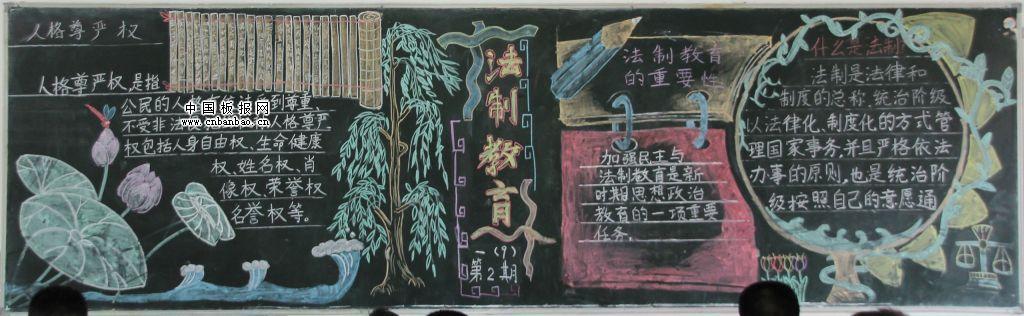 人格尊严权
人格尊严权,是指
公民的人
到尊重
中国板报网
www.cnbanbao.cn
不受非法
人格尊严
权包括人身自由权、生命健康
权、姓名权、肖
像权、荣誉权
名誉权等。
法制教育
一(9)
第2期
法制教育
的重要性
加强民主与
法制教育是新
时期思想政治
教育的一项重要
任务。
什么是法制
法制是法律和
制度的总称,统治阶级
以法律化、制度化的方式管
理国家事务,并且严格依法
办事的原则,也是统治阶
级按照自己的意愿通